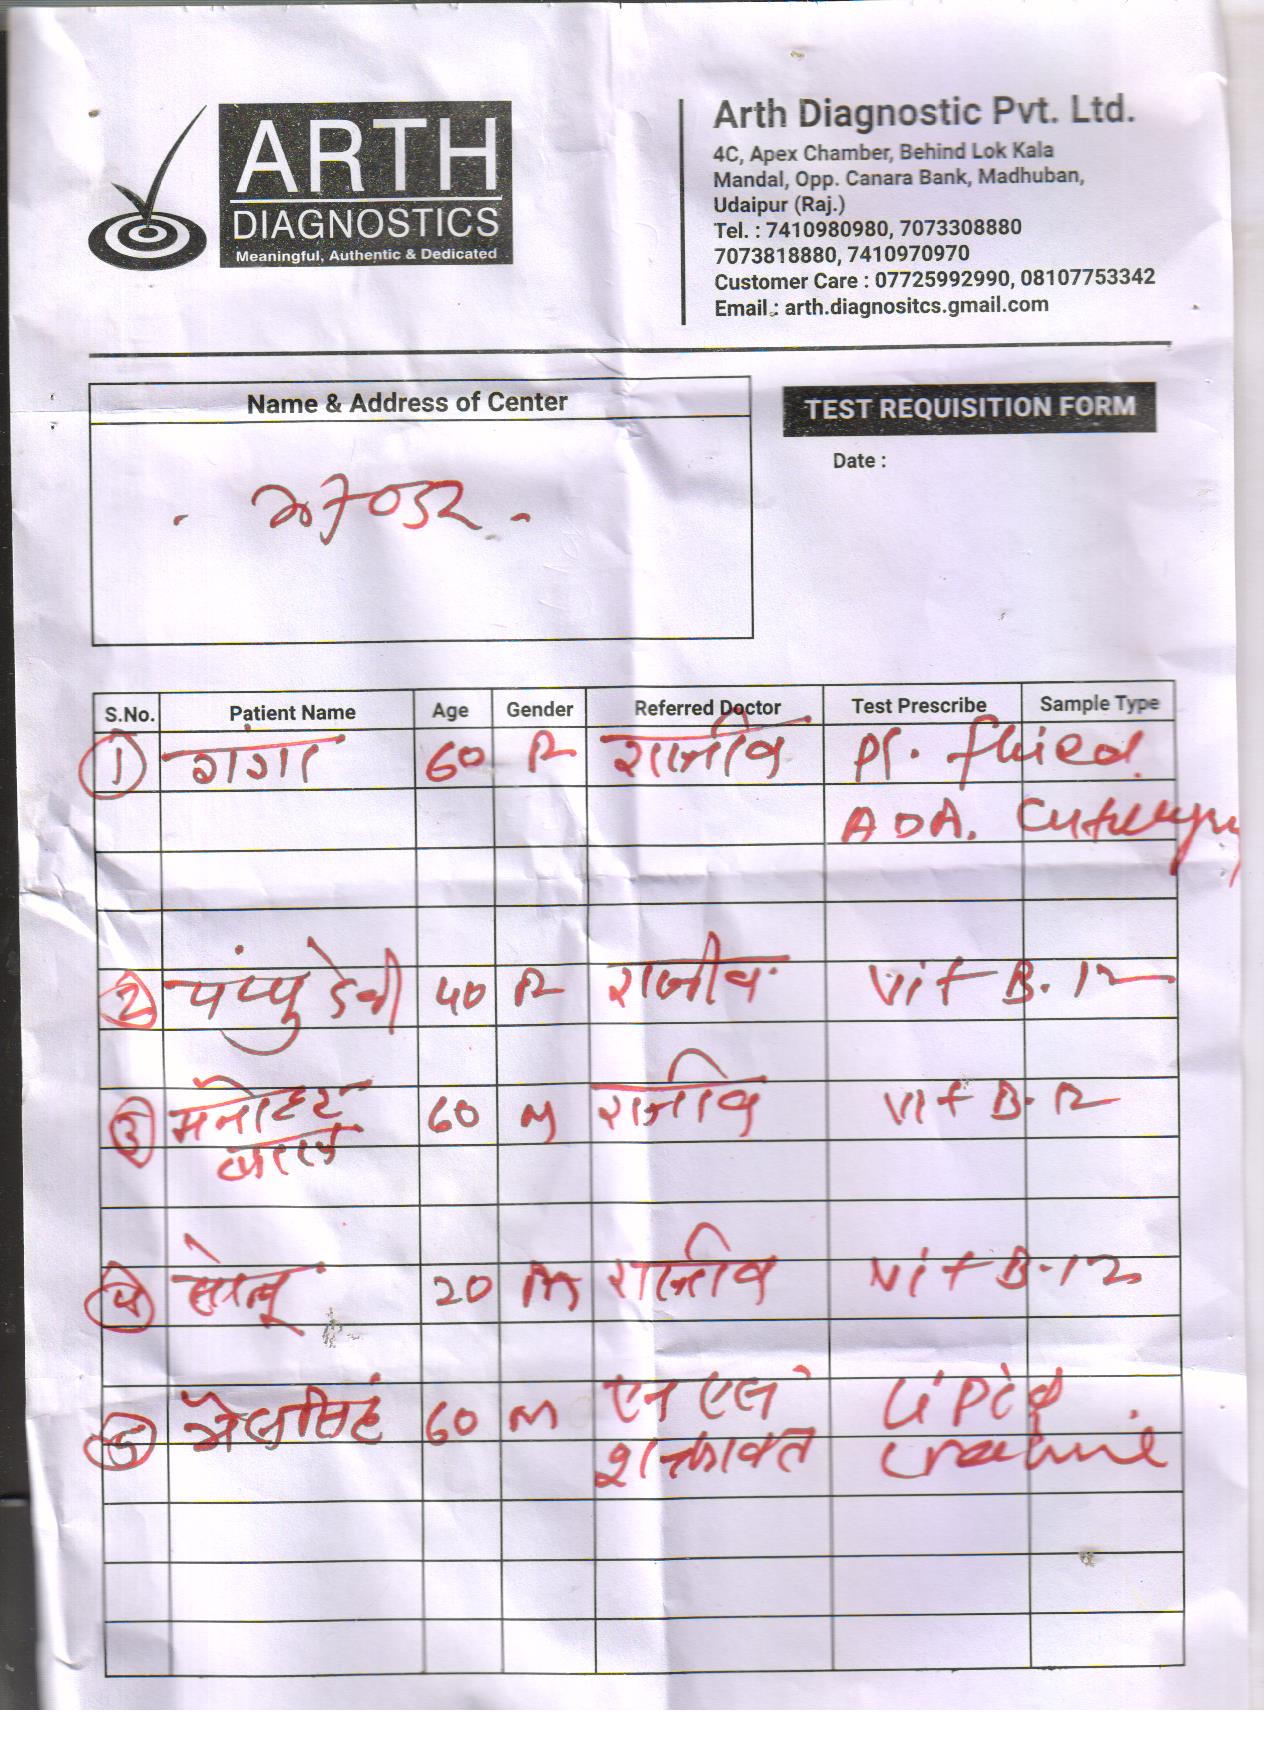 ARTH
DIAGNOSTICS
Meaningful, Authentic & Dedicated
Arth Diagnostic Pvt. Ltd.
4C, Apex Chamber, Behind Lok Kala
Mandal, Opp. Canara Bank, Madhuban,
Udaipur (Raj.)
Tel. : 7410980980, 7073308880
7073818880, 7410970970
Customer Care : 07725992990, 08107753342
Email : arth.diagnositcs.gmail.com
Name & Address of Center
TEST REQUISITION FORM
Date :
S.No. Patient Name Age Gender Referred Doctor Test Prescribe Sample Type
1 गंगा 60 राजीव Pl. fluied
ADA.
2 पंप्पु देवी 40 राजीव Vit B.12
3 मनोहर 60 M राजीव Vit B.12
लाल
4 20 M राजीव Vit B.12
5 60 M एन एल Lipid
शक्तावत